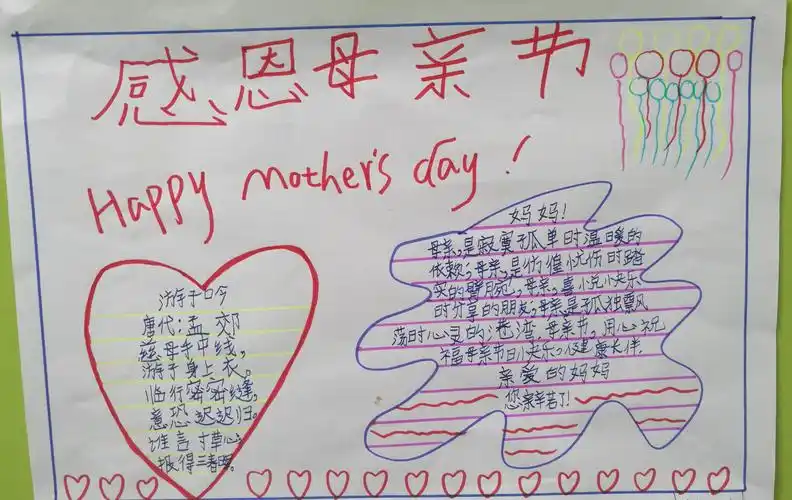 感恩母亲节
Happy mother's day!
游子吟
唐代:孟 郊
慈母手中线,
游子身上衣。
临行密密缝,
意恐迟迟归。
谁言寸草心,
报得三春晖。
妈妈!
母亲,是寂寞孤单时温暖的
依赖;母亲,是彷徨忧伤时踏
实的臂腕;母亲,喜悦快乐
时分享的朋友;母亲是孤独飘
荡时心灵的港湾,母亲节,用心祝
福母亲节日快乐,健康长伴.
亲爱的妈妈
您辛苦了!